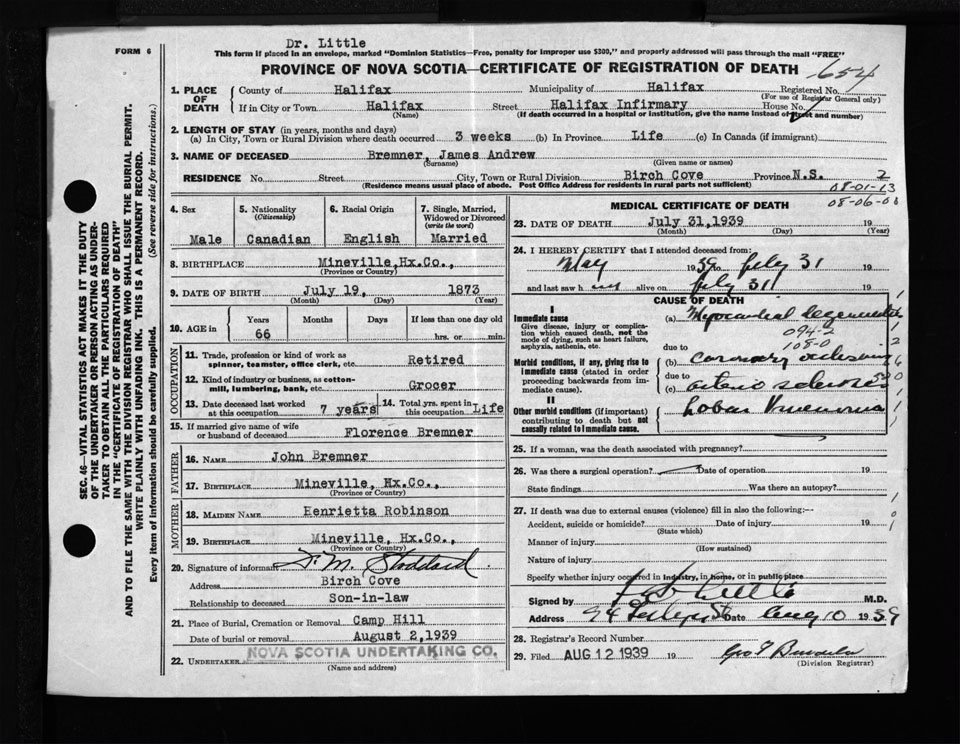 Dr. Little
FORM 6
This form if placed in an envelope, marked "Dominion Statistics—Free, penalty for improper use $300," and properly addressed will pass through the mail "FREE"
PROVINCE OF NOVA SCOTIA—CERTIFICATE OF REGISTRATION OF DEATH
654
SEC. 46—VITAL STATISTICS ACT MAKES IT THE DUTY
OF THE UNDERTAKER OR PERSON ACTING AS UNDER-
TAKER TO OBTAIN ALL THE PARTICULARS REQUIRED
IN THE "CERTIFICATE OF REGISTRATION OF DEATH"
AND TO FILE THE SAME WITH THE DIVISION REGISTRAR WHO SHALL ISSUE THE BURIAL PERMIT.
WRITE PLAINLY WITH UNFADING INK. THIS IS A PERMANENT RECORD.
Every item of information should be carefully supplied. (See reverse side for instructions.)
1. PLACE OF DEATH
County of Halifax Municipality of Halifax Registered No.
(For use of Registrar General only)
If in City or Town Halifax Street Halifax Infirmary House No.
(Name) (If death occurred in a hospital or institution, give the name instead of street and number)
2. LENGTH OF STAY (in years, months and days)
(a) In City, Town or Rural Division where death occurred 3 weeks (b) In Province Life (c) In Canada (if immigrant)
3. NAME OF DECEASED Bremner, James Andrew
(Surname) (Given name or names)
RESIDENCE No. Street City, Town or Rural Division Birch Cove Province N.S. 2
(Residence means usual place of abode. Post Office Address for residents in rural parts not sufficient)
08-01-13
08-06-08
4. Sex Male
5. Nationality (Citizenship) Canadian
6. Racial Origin English
7. Single, Married, Widowed or Divorced (write the word) Married
8. BIRTHPLACE Mineville, Hx.Co.,
(Province or Country)
9. DATE OF BIRTH July 19, 1873
(Month) (Day) (Year)
10. AGE in Years Months Days If less than one day old
66 hrs. or min.
OCCUPATION
11. Trade, profession or kind of work as spinner, teamster, office clerk, etc. Retired
12. Kind of industry or business, as cotton-mill, lumbering, bank, etc. Grocer
13. Date deceased last worked at this occupation 7 years
14. Total yrs. spent in this occupation Life
15. If married give name of wife or husband of deceased Florence Bremner
FATHER
16. NAME John Bremner
17. BIRTHPLACE Mineville, Hx.Co.,
(Province or Country)
MOTHER
18. MAIDEN NAME Henrietta Robinson
19. BIRTHPLACE Mineville, Hx.Co.,
(Province or Country)
20. Signature of informant F. M. Stoddard
Address Birch Cove
Relationship to deceased Son-in-law
21. Place of Burial, Cremation or Removal Camp Hill
Date of burial or removal August 2, 1939
22. UNDERTAKER NOVA SCOTIA UNDERTAKING CO.
(Name and address)
MEDICAL CERTIFICATE OF DEATH
23. DATE OF DEATH July 31, 1939 19
(Month) (Day) (Year)
24. I HEREBY CERTIFY that I attended deceased from:
May 1939 to July 31 19
and last saw h im alive on July 31 19
CAUSE OF DEATH
I
Immediate cause
Give disease, injury or complication which caused death, not the mode of dying, such as heart failure, asphyxia, asthenia, etc.
(a) Myocardial degeneration
094-2
108-0
due to
Morbid conditions, if any, giving rise to immediate cause (stated in order proceeding backwards from immediate cause).
(b) coronary occlusion
due to
(c) arterio sclerosis
II
Other morbid conditions (if important) contributing to death but not causally related to immediate cause.
Lobar Pneumonia
25. If a woman, was the death associated with pregnancy?
26. Was there a surgical operation? Date of operation 19
State findings Was there an autopsy?
27. If death was due to external causes (violence) fill in also the following:—
Accident, suicide or homicide? Date of injury 19
(State which)
Manner of injury
(How sustained)
Nature of injury
Specify whether injury occurred in industry, in home, or in public place
Signed by Little M.D.
Address Date Aug 10 1939
28. Registrar's Record Number
29. Filed AUG 12 1939 19
(Division Registrar)